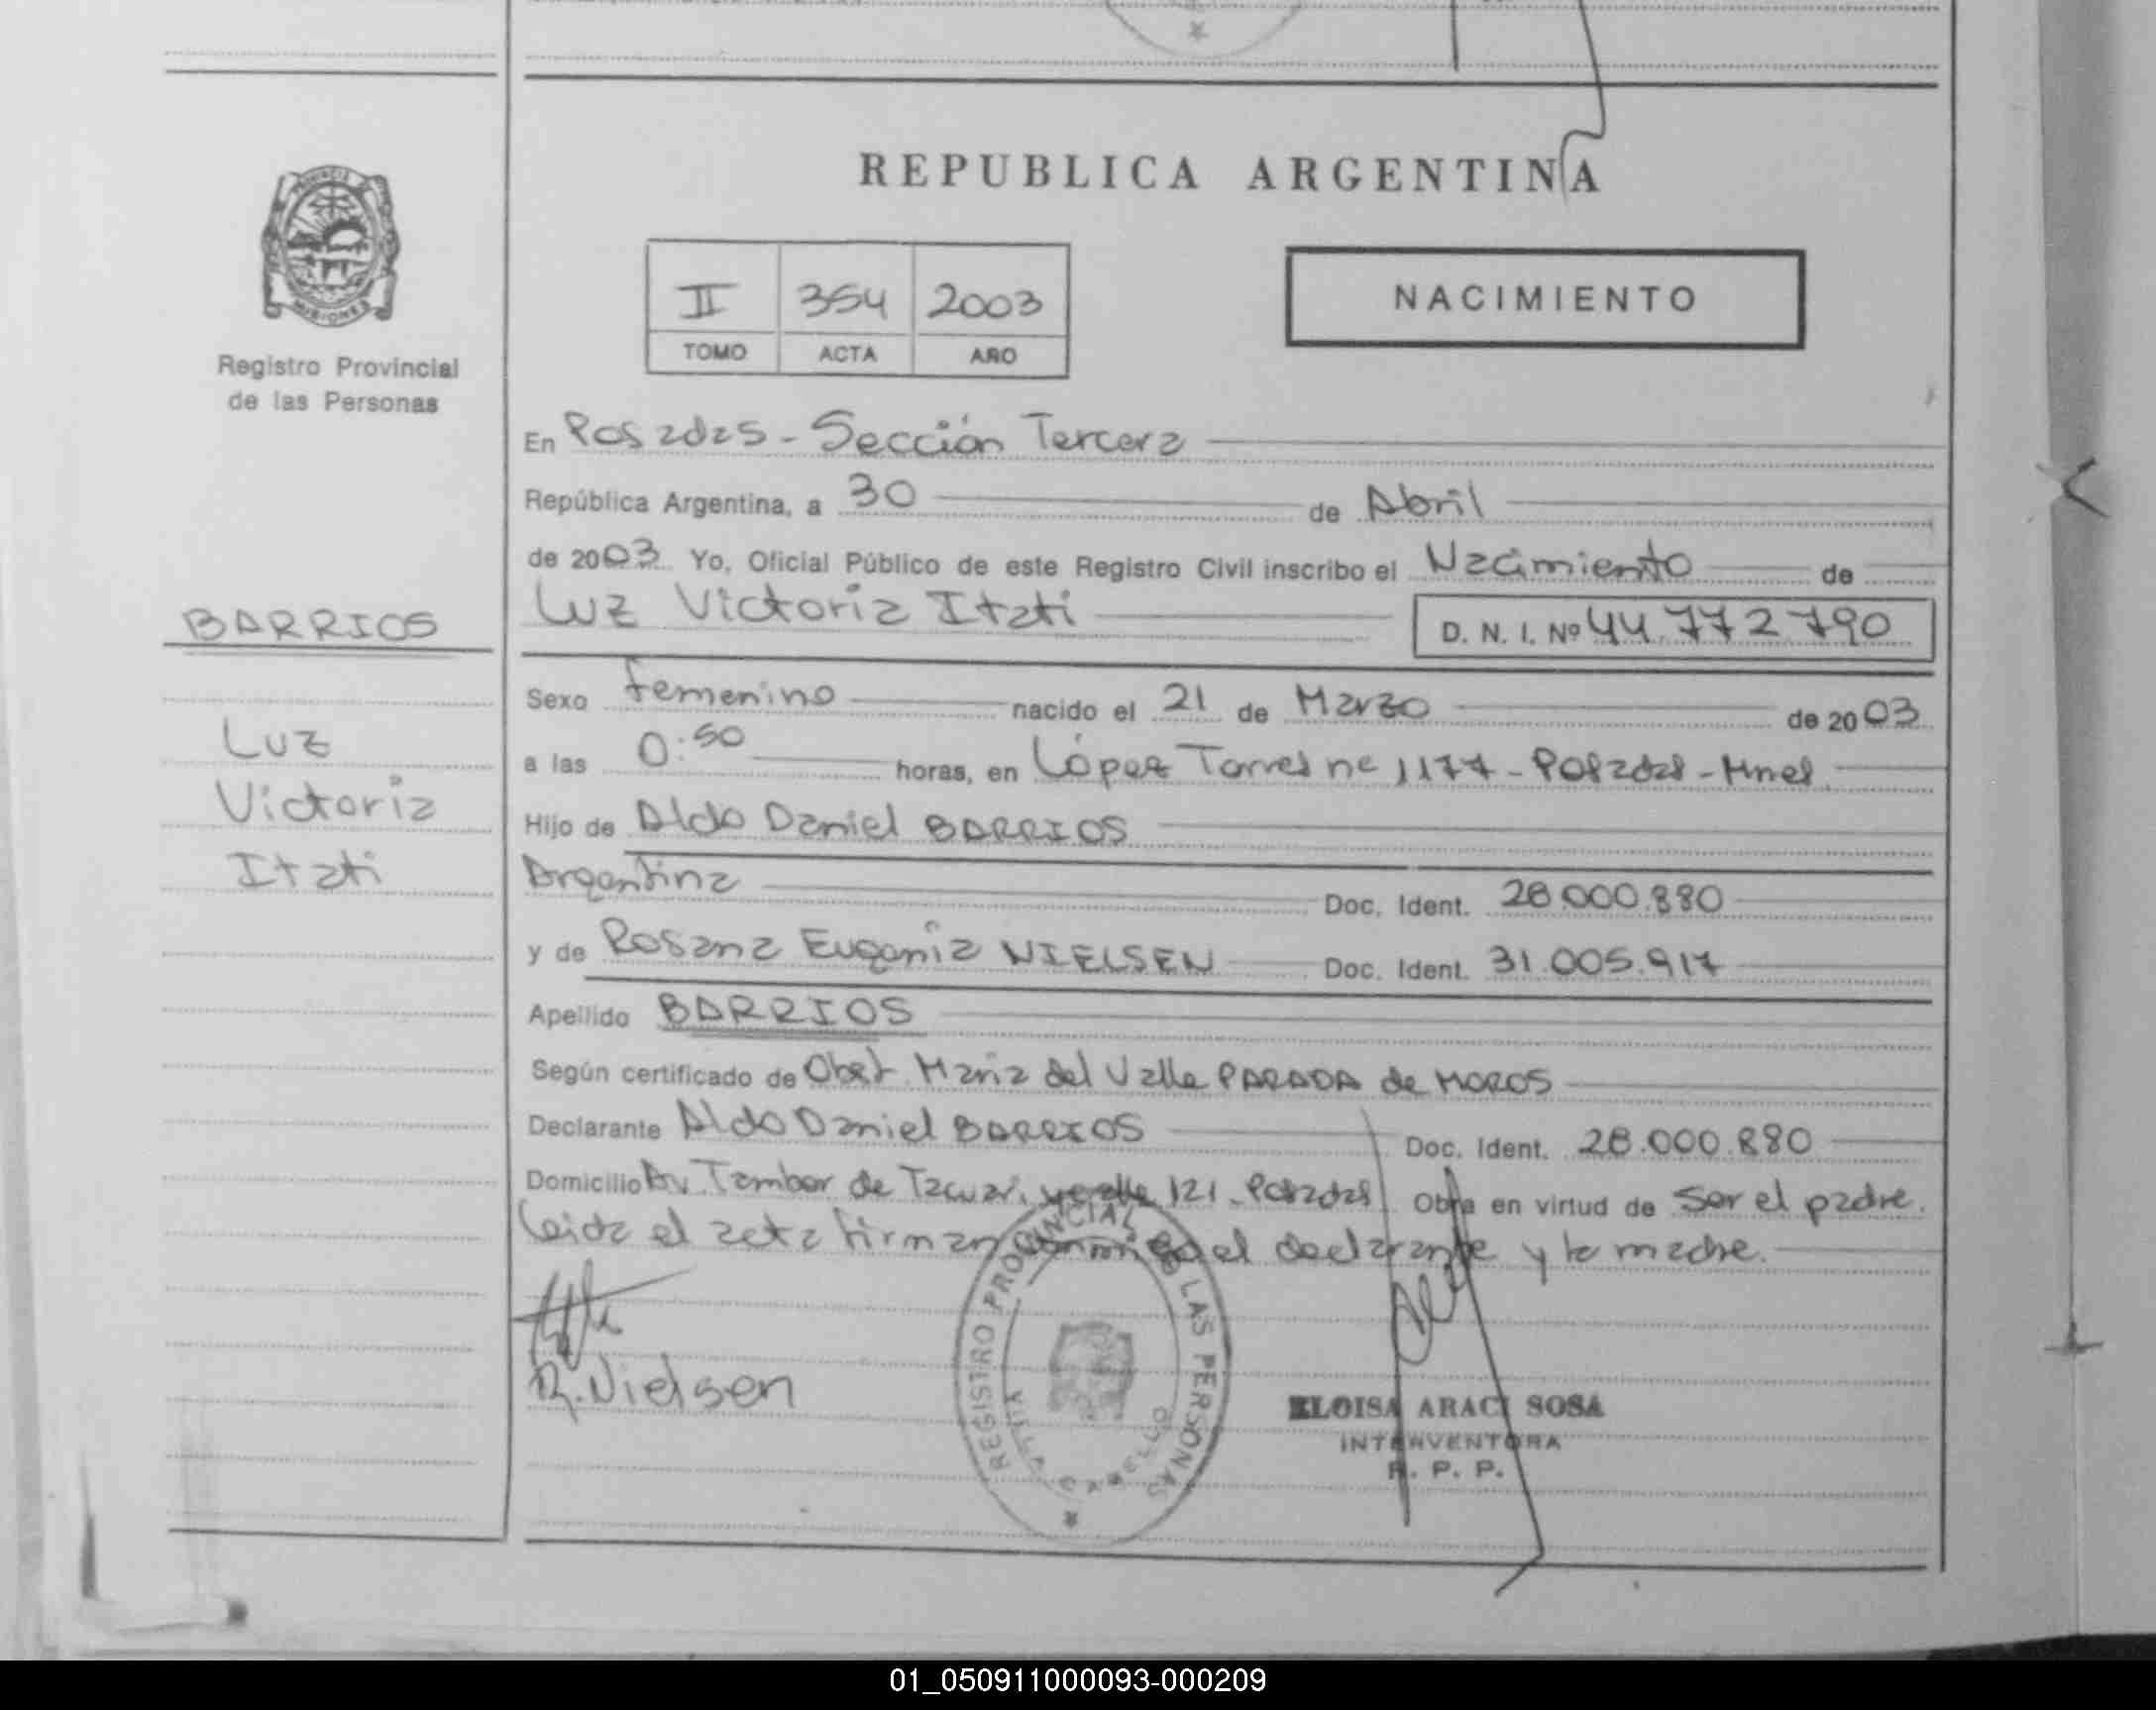 REPUBLICA ARGENTINA
II 354 2003
TOMO ACTA AÑO
NACIMIENTO
PROVINCIA DE MISIONES
Registro Provincial
de las Personas
BARRIOS
Luz
Victoria
Itati
En Posadas - Sección Tercera
República Argentina, a 30 de Abril
de 2003 Yo, Oficial Público de este Registro Civil inscribo el Nacimiento de
Luz Victoria Itati D. N. I. Nº 44.772.790
Sexo femenino nacido el 21 de Marzo de 2003
a las 0:50 horas, en López Torres nº 1177 - Posadas - Mnes.
Hijo de Aldo Daniel BARRIOS
Argentina Doc. Ident. 28.000.880
y de Rosana Eugenia NIELSEN Doc. Ident. 31.005.917
Apellido BARRIOS
Según certificado de Obst. Maria del Valle PARADA de MOROS
Declarante Aldo Daniel BARRIOS Doc. Ident. 28.000.880
Domicilio Av. Tambor de Tacuari 121 - Posadas Obra en virtud de Ser el padre.
Leida el acta firman conmigo el declarante y la madre.
R. Nielsen
REGISTRO PROVINCIAL DE LAS PERSONAS
ELOISA ARACI SOSA
INTERVENTORA
R. P. P.
01_050911000093-000209